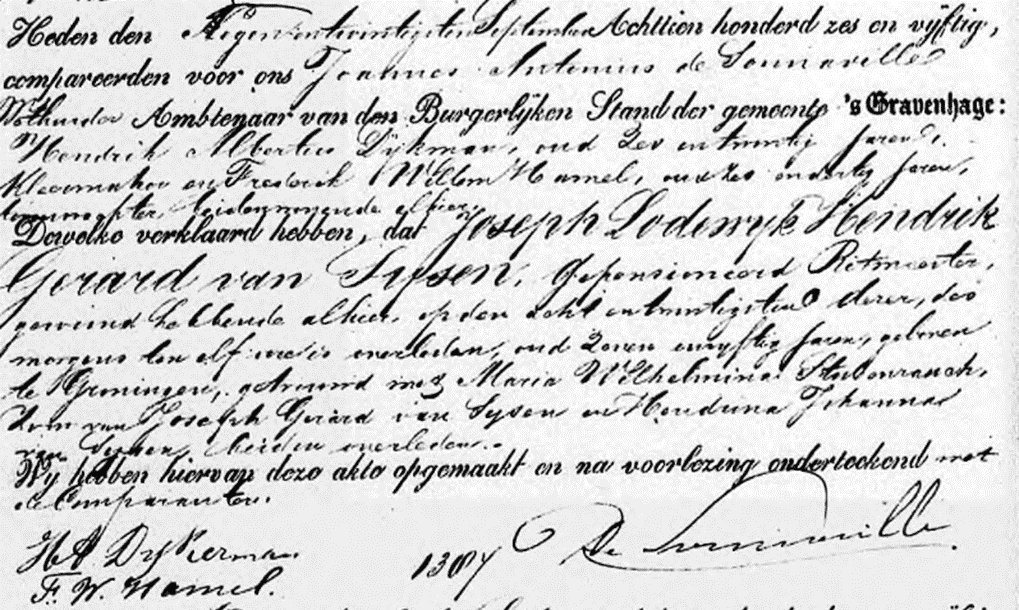 Heden den Negenentwintigsten September Achttien honderd zes en vijftig,
compareerden voor ons Joannes Antonius de Sonnaville
Wethouder Ambtenaar van den Burgerlijken Stand der gemeente 's Gravenhage:
Hendrik Albertus Dijkman, oud Zes en twintig Jaren,
Kleermaker en Frederik Willem Hamel, oud zes en dertig Jaren,
beiden wonende alhier,
Dewelke verklaard hebben, dat Joseph Lodewyk Hendrik
Gerard van Sysen, Gepensioneerd Ritmeester,
gewoond hebbende alhier, op den acht en twintigsten dezer, des
morgens ten elf ure is overleden, oud Zeven en vyftig Jaren, geboren
te Groningen, getrouwd met Maria Wilhelmina
Zoon van Joseph Gerard van Sysen en Johanna
van beiden overleden.
Wij hebben hiervan deze akte opgemaakt en na voorlezing onderteekend met
de Comparanten.
H A
De Sonnaville
F. W. Hamel.